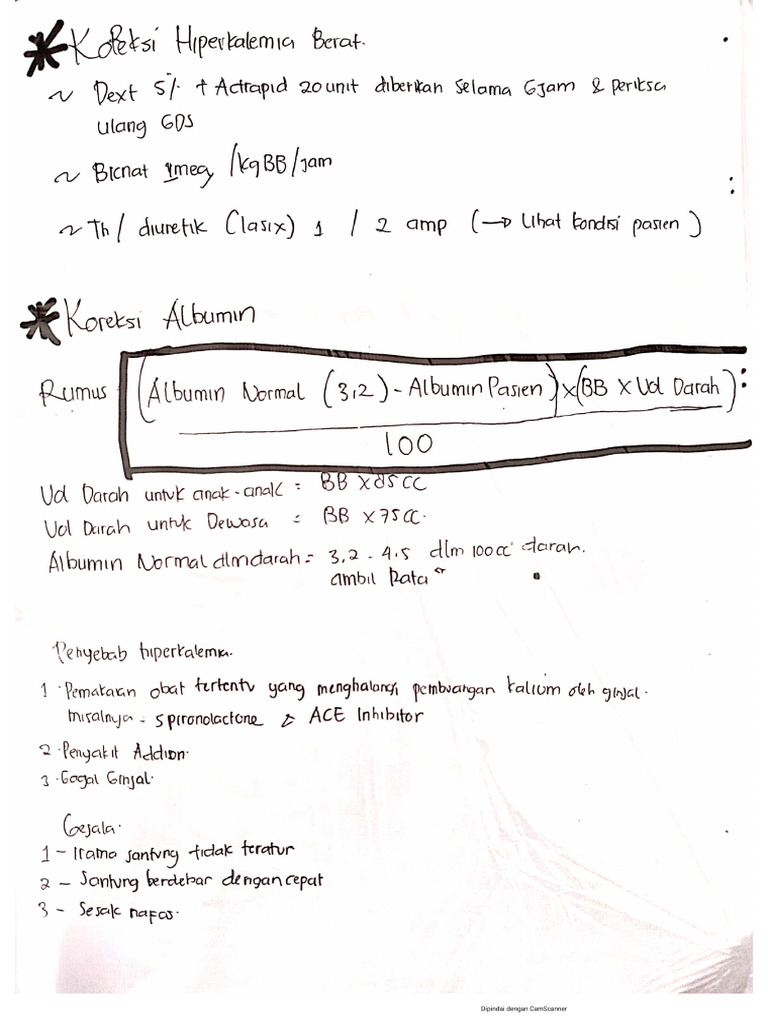 Koreksi Hiperkalemia Berat.
~ Dext 5% + Actrapid 20 unit diberikan selama 6 jam & periksa
ulang GDS
~ Bicnat 1meq /kgBB/jam
~ Th/ diuretik (lasix) 1 / 2 amp (→ Lihat kondisi pasien)
Koreksi Albumin
Rumus (Albumin Normal (3,2) - Albumin Pasien) x (BB x Vol Darah) :
100
Vol Darah untuk anak-anak = BB x 85 CC
Vol Darah untuk Dewasa = BB x 75 CC.
Albumin Normal dlm darah = 3,2 - 4,5 dlm 100 cc darah.
ambil Rata"
Penyebab hiperkalemia.
1. Pemakaian obat tertentu yang menghalangi pembuangan kalium oleh ginjal.
misalnya = spironolactone & ACE Inhibitor
2. Penyakit Addison.
3. Gagal Ginjal.
Gejala.
1 - Irama jantung tidak teratur
2 - Jantung berdebar dengan cepat
3 - Sesak nafas.
Dipindai dengan CamScanner